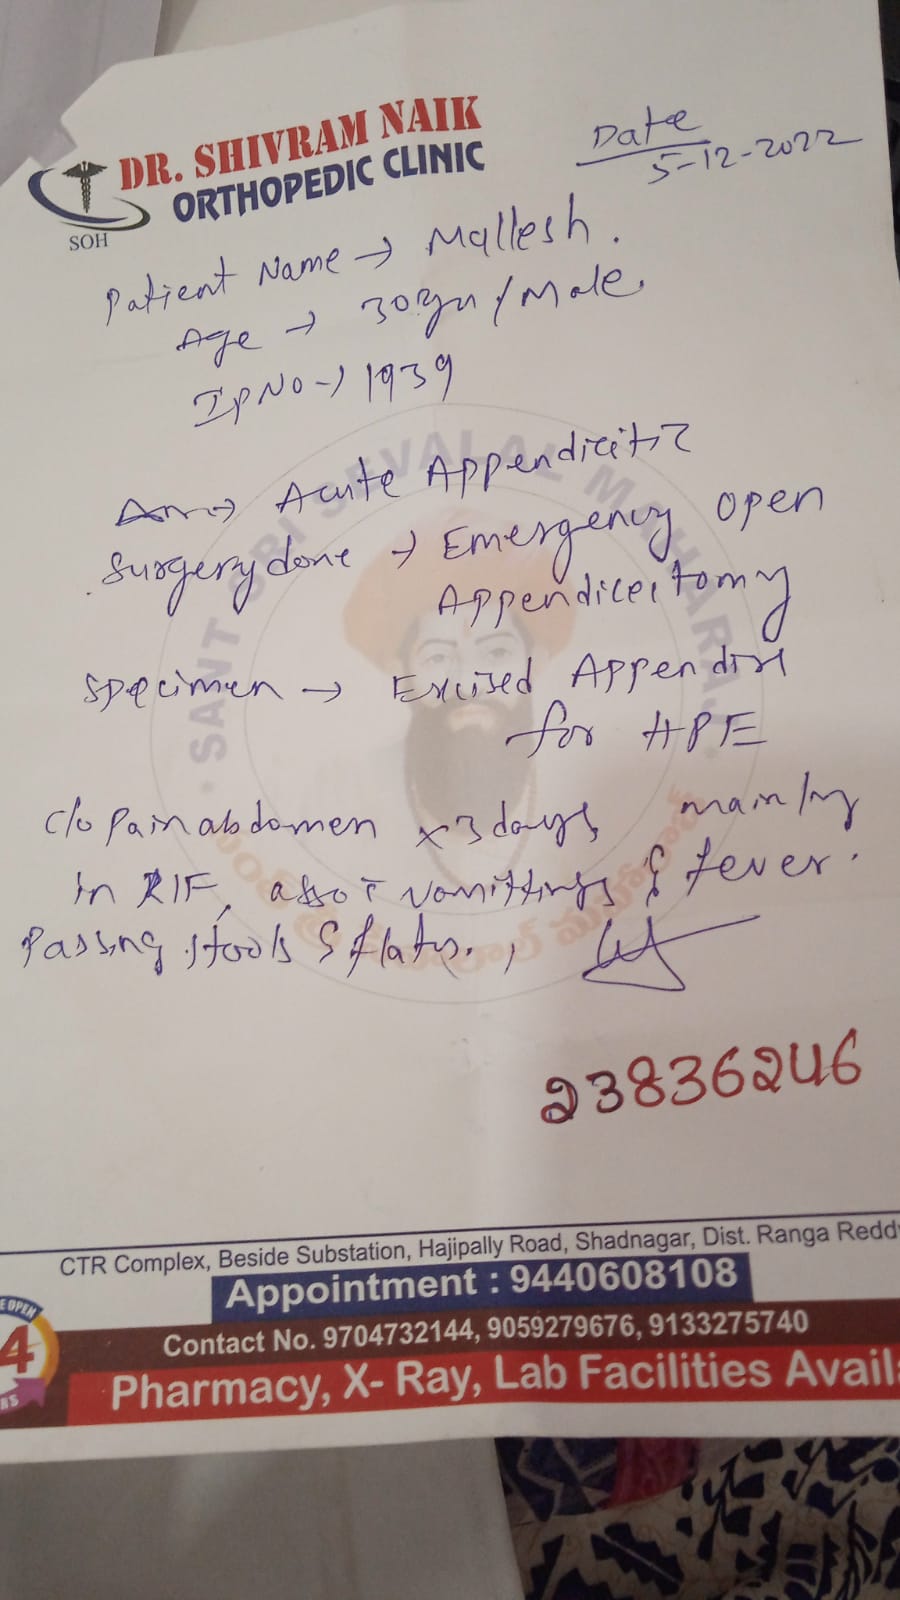 DR. SHIVRAM NAIK
ORTHOPEDIC CLINIC
SOH
Date
5-12-2022
Patient Name → Mallesh.
Age → 30yrs / Male.
IP NO → 1939
→ Acute Appendicitis
Surgery done → Emergency open
Appendicectomy
Specimen → Excised Appendix
for HPE
c/o Pain abdomen x 3 days mainly
in RIF, asso c̄ vomittings & fever.
Passing stools & flatus.
SANT SRI SEVALAL MAHARAJ
23836246
CTR Complex, Beside Substation, Hajipally Road, Shadnagar, Dist. Ranga Reddy
Appointment : 9440608108
Contact No. 9704732144, 9059279676, 9133275740
Pharmacy, X- Ray, Lab Facilities Avail